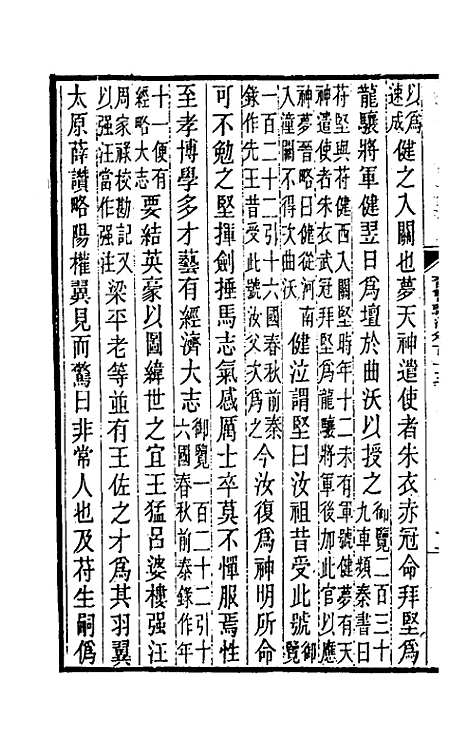 以爲速成健之入關也夢天神遣使者朱衣赤冠命拜堅爲
龍驤將軍健翌日爲壇於曲沃以授之御覽二百三十九車類秦書曰
苻堅與苻健西入關堅時年十二未有軍號健夢有天神遣使者朱衣武冠拜堅爲龍驤將軍後加此官以應
神夢晉略曰健從河南入潼關不得次曲沃健泣謂堅曰汝祖昔受此號御覽
一百二十二引十六國春秋前秦錄作先王昔受此號汝父次爲之今汝復爲神明所命
可不勉之堅揮劍捶馬志氣感厲士卒莫不憚服焉性
至孝博學多才藝有經濟大志御覽一百二十二引十六國春秋前秦錄作年
十一便有經略大志要結英豪以圖緯世之宜王猛呂婆樓强汪
周家祿校勘記又以强汪當作强汪梁平老等並有王佐之才爲其羽翼
太原薛讚略陽權翼見而驚曰非常人也及苻生嗣僞